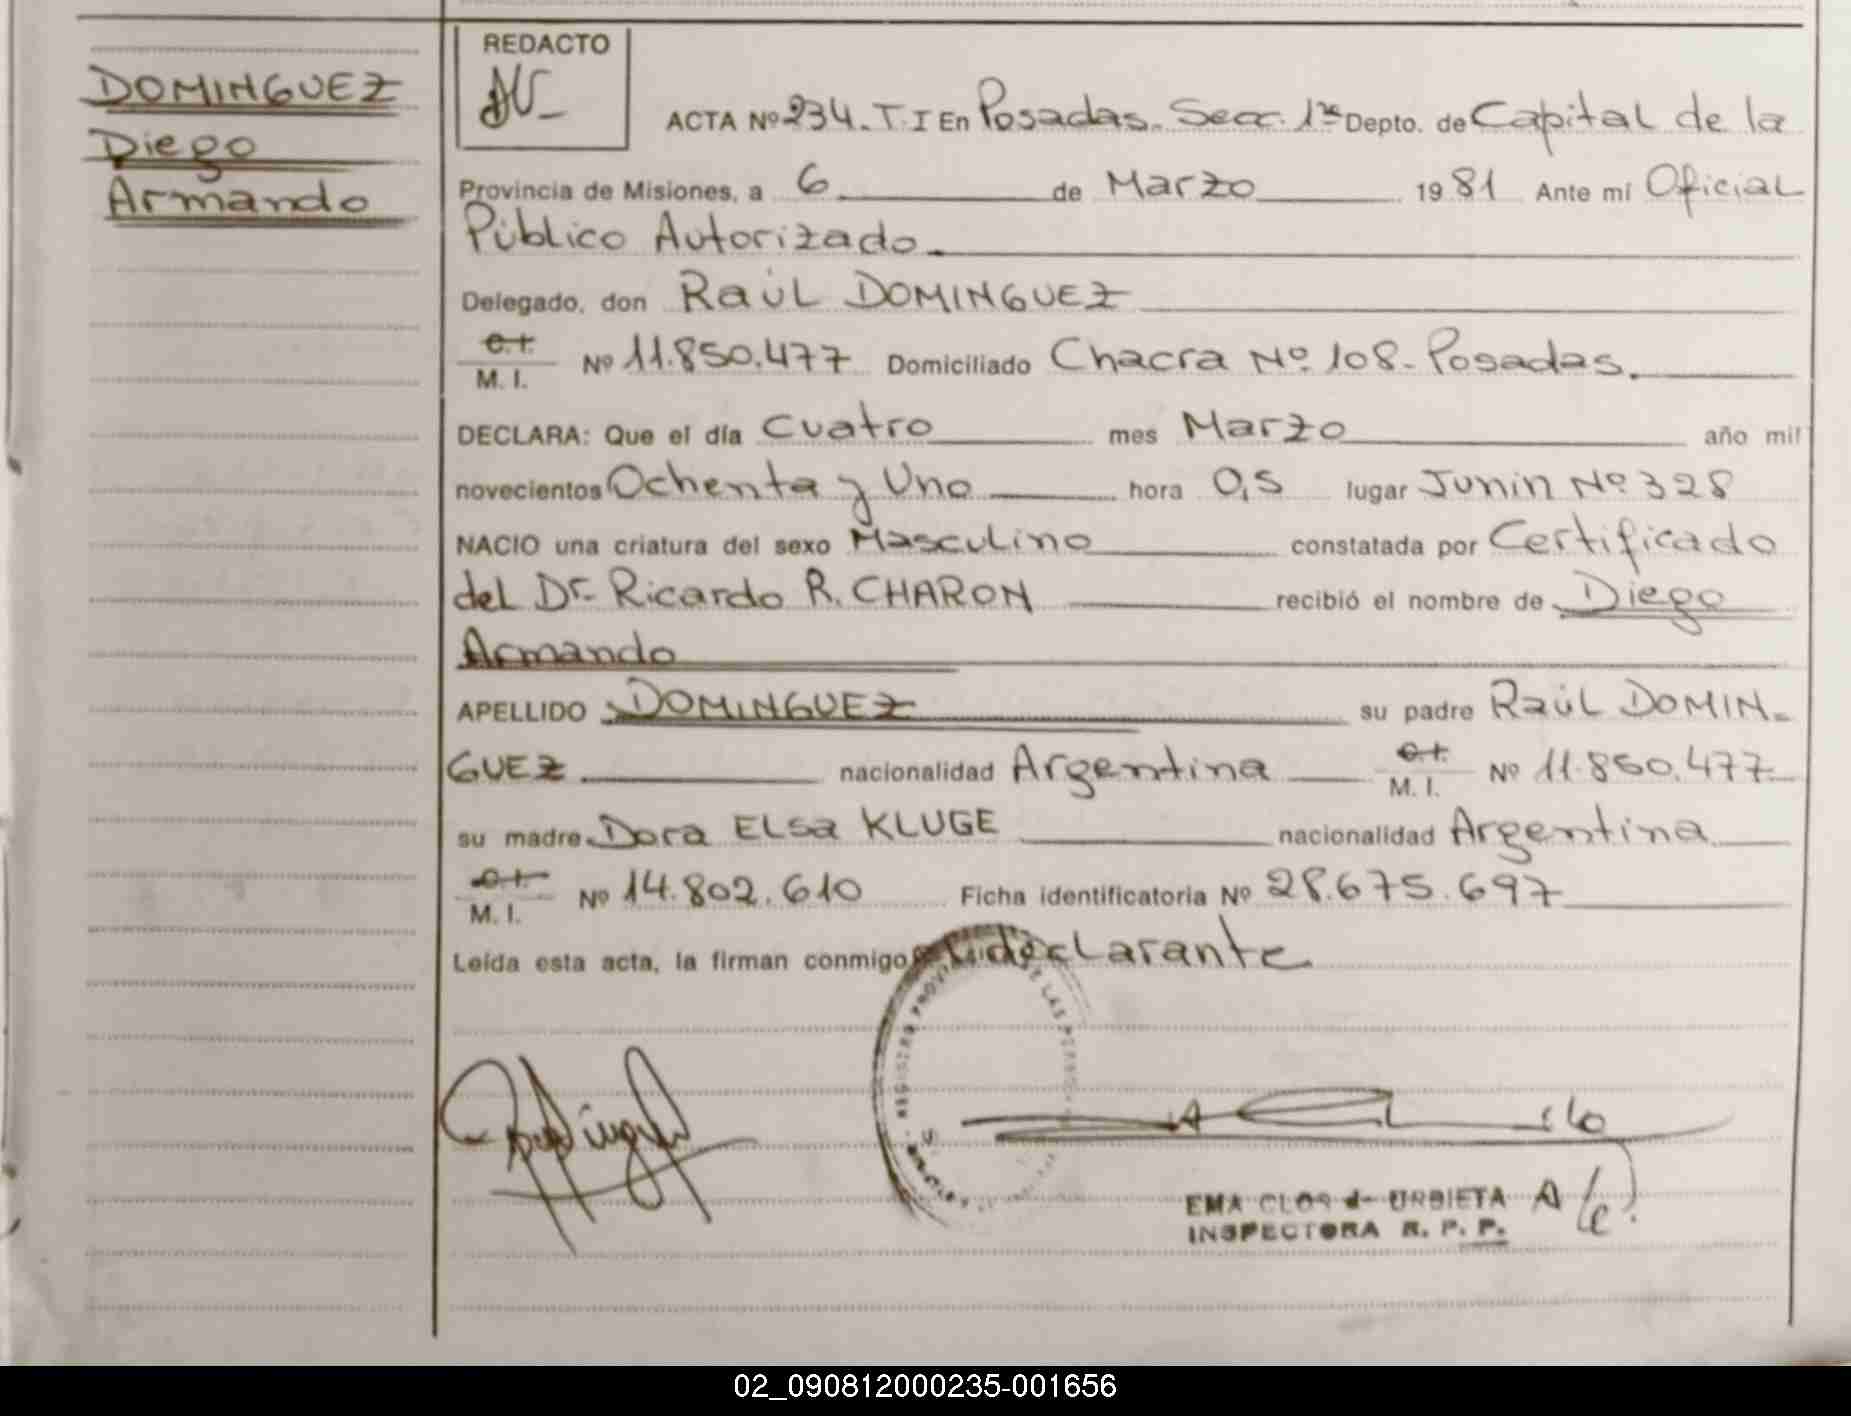 DOMINGUEZ
Diego
Armando
REDACTO
ACTA Nº 234. T. I En Posadas. Secc. 1ra Depto. de Capital de la
Provincia de Misiones, a 6 de Marzo 1981 Ante mí Oficial
Público Autorizado.
Delegado, don Raúl DOMINGUEZ
C.I.
M. I. Nº 11.850.477 Domiciliado Chacra Nº 108- Posadas.
DECLARA: Que el día Cuatro mes Marzo año mil
novecientos Ochenta y Uno hora 0,5 lugar Junin Nº 328
NACIO una criatura del sexo Masculino constatada por Certificado
del Dr. Ricardo R. CHARON recibió el nombre de Diego
Armando
APELLIDO DOMINGUEZ su padre Raúl DOMIN-
GUEZ nacionalidad Argentina C.I.
M. I. Nº 11.850.477
su madre Dora ELsa KLUGE nacionalidad Argentina
C.I.
M. I. Nº 14.802.610 Ficha identificatoria Nº 28.675.697
Leída esta acta, la firman conmigo el declarante
EMA CLOS de URBIETA A/c.
INSPECTORA R. P. P.
02_090812000235-001656